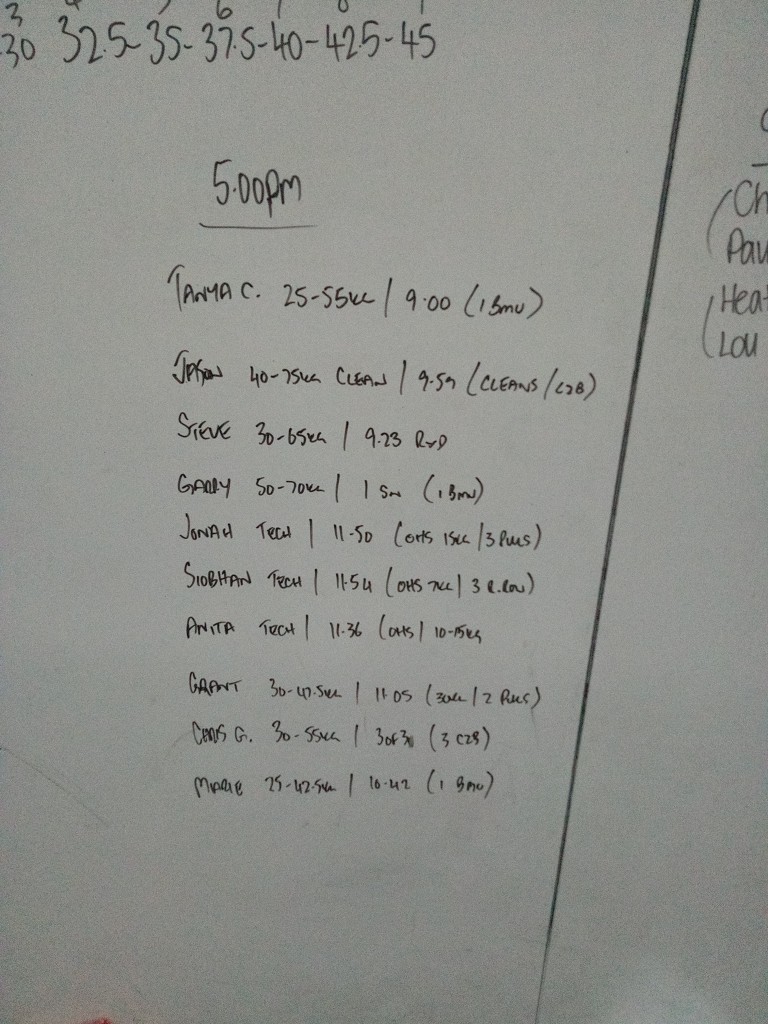 3 6
30 32.5-35-37.5-40-42.5-45
5.00pm
TANYA C. 25-55KG | 9.00 (1 BMU)
JASON 40-75KG CLEAN | 9.59 (CLEANS/C2B)
STEVE 30-65KG | 9.23 RXD
GARRY 50-70KG | (1 BMU)
JONAH TECH | 11.50 (OHS 15KG | 3 PULLS)
SIOBHAN TECH | 11.54 (OHS 7KG | 3 R.ROW)
ANITA TECH | 11.36 (OHS | 10-15KG
GRANT 30-47.5KG | 11.05 (30KG | 2 PULLS)
CHRIS G. 30-55KG | (3 C2B)
MARIE 25-42.5KG | 10.42 (1 BMU)
Ch
Pau
Heat
Lou